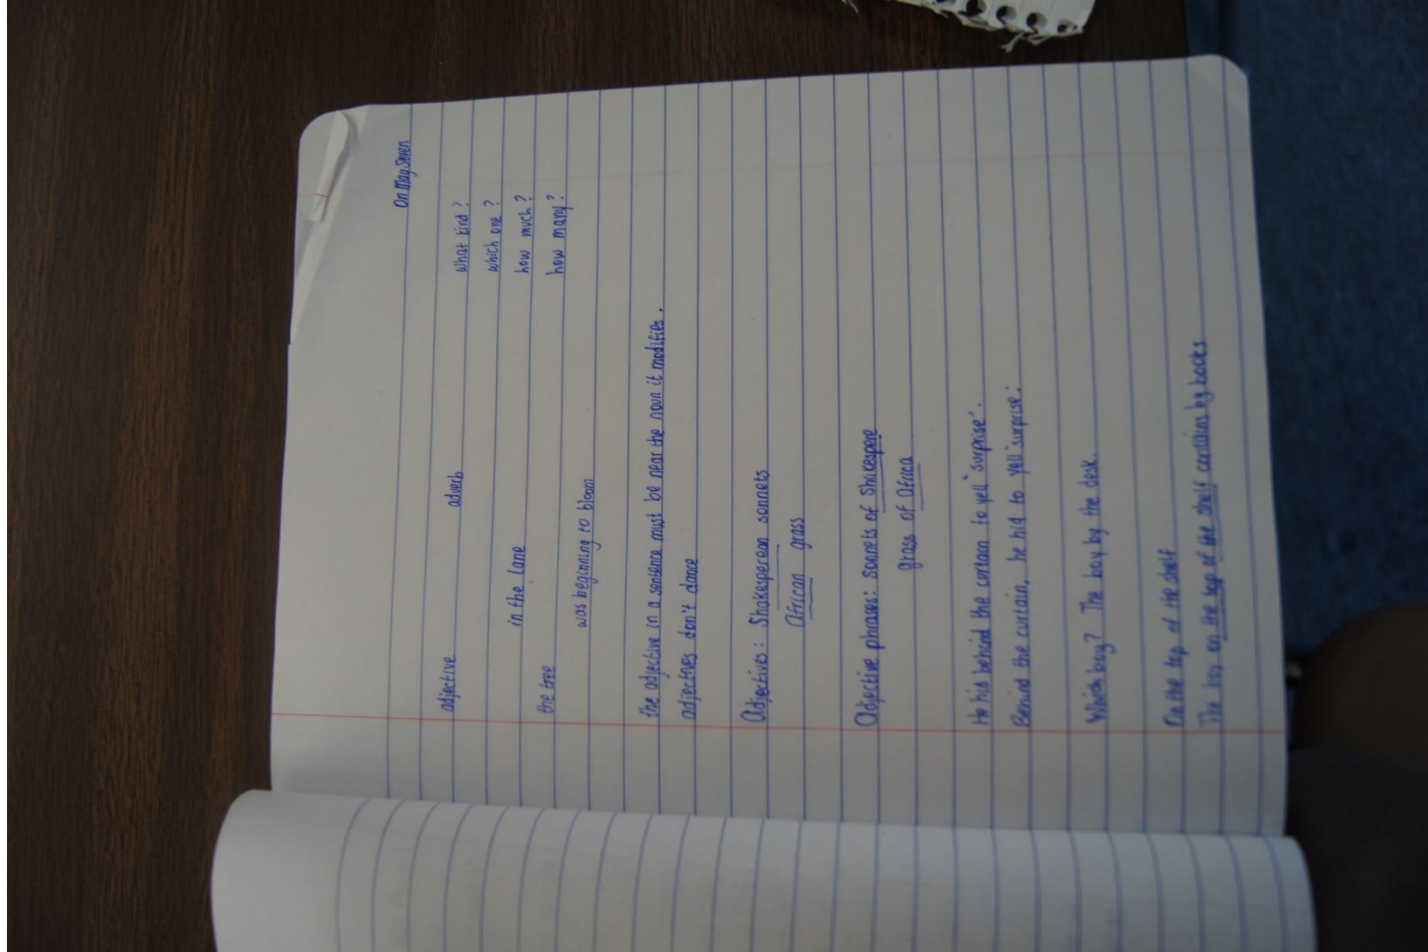 On May Seven
adjective adverb what kind?
which one?
in the lane how much?
the tree how many?
was beginning to bloom
the adjective in a sentence must be near the noun it modifies.
adjectives don't dance
Adjectives: Shakesperean sonnets
African grass
Adjective phrases: sonnets of Shakespere
grass of Africa
He hid behind the curtain to yell "surprise".
Behind the curtain, he hid to yell "surprise".
Which boy? The boy by the desk.
On the top of the shelf
The boy on the top of the shelf contains by books